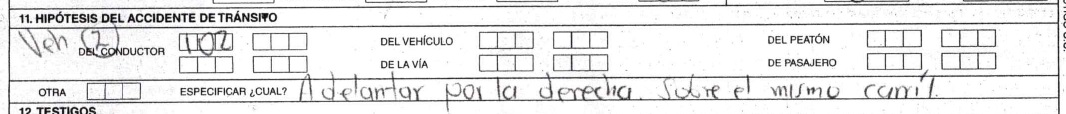 11. HIPÓTESIS DEL ACCIDENTE DE TRÁNSITO
Veh (2) DEL CONDUCTOR 102 DEL VEHÍCULO DEL PEATÓN
DE LA VÍA DE PASAJERO
OTRA ESPECIFICAR ¿CUAL? Adelantar por la derecha sobre el mismo carril.
12. TESTIGOS